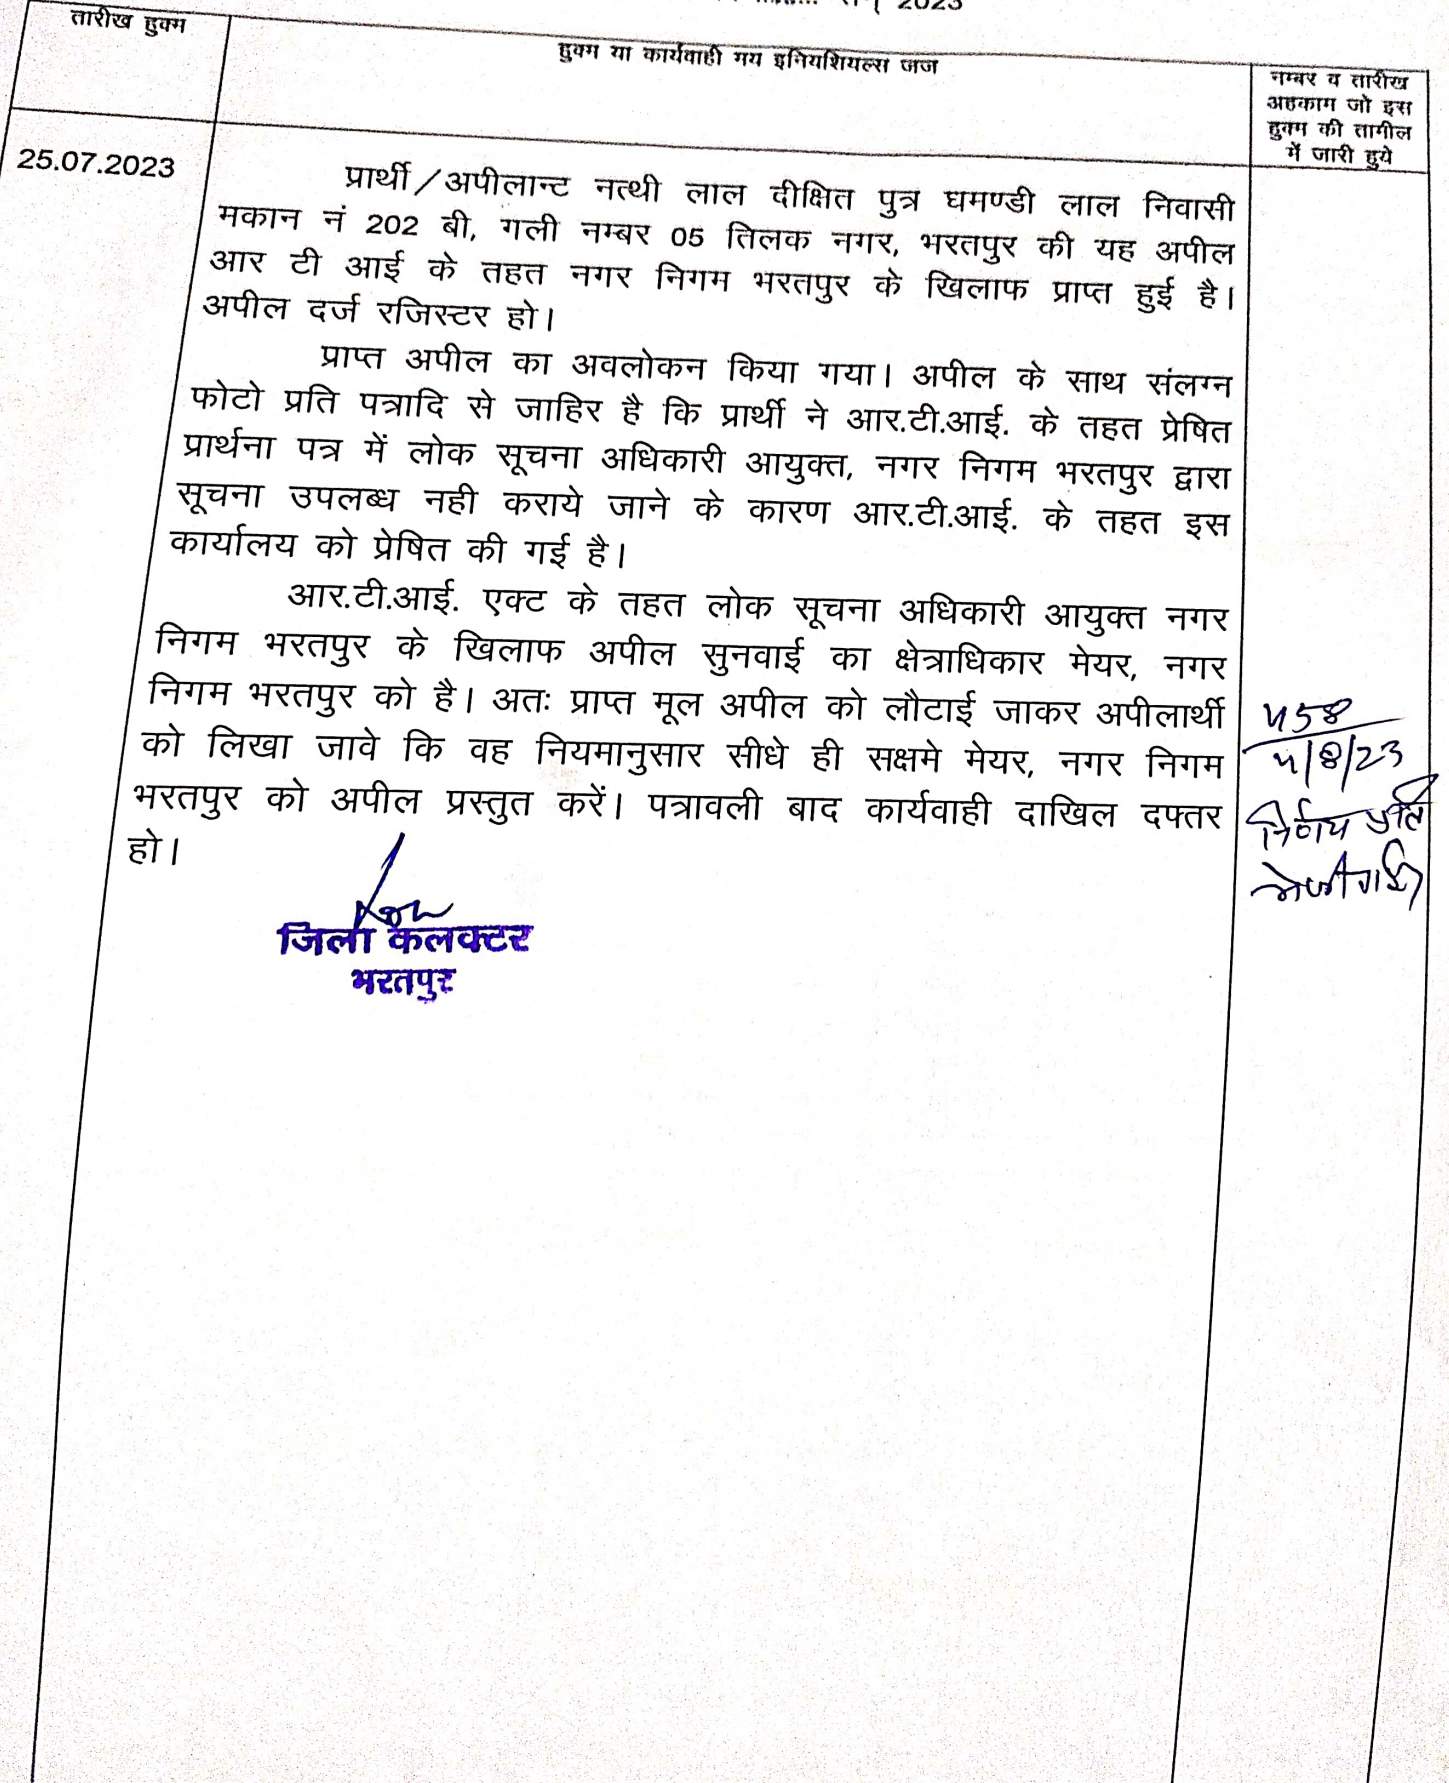 2023
तारीख हुक्म
हुक्म या कार्यवाही मय इनियशियल्स जज
नम्बर व तारीख
अहकाम जो इस
हुक्म की तामील
में जारी हुये
25.07.2023
प्रार्थी/अपीलान्ट नत्थी लाल दीक्षित पुत्र घमण्डी लाल निवासी
मकान नं 202 बी, गली नम्बर 05 तिलक नगर, भरतपुर की यह अपील
आर टी आई के तहत नगर निगम भरतपुर के खिलाफ प्राप्त हुई है।
अपील दर्ज रजिस्टर हो।
प्राप्त अपील का अवलोकन किया गया। अपील के साथ संलग्न
फोटो प्रति पत्रादि से जाहिर है कि प्रार्थी ने आर.टी.आई. के तहत प्रेषित
प्रार्थना पत्र में लोक सूचना अधिकारी आयुक्त, नगर निगम भरतपुर द्वारा
सूचना उपलब्ध नही कराये जाने के कारण आर.टी.आई. के तहत इस
कार्यालय को प्रेषित की गई है।
आर.टी.आई. एक्ट के तहत लोक सूचना अधिकारी आयुक्त नगर
निगम भरतपुर के खिलाफ अपील सुनवाई का क्षेत्राधिकार मेयर, नगर
निगम भरतपुर को है। अतः प्राप्त मूल अपील को लौटाई जाकर अपीलार्थी
को लिखा जावे कि वह नियमानुसार सीधे ही सक्षमे मेयर, नगर निगम
भरतपुर को अपील प्रस्तुत करें। पत्रावली बाद कार्यवाही दाखिल दफ्तर
हो।
जिला कलक्टर
भरतपुर
458
4/8/23
निर्णय प्रति
भेजी गई